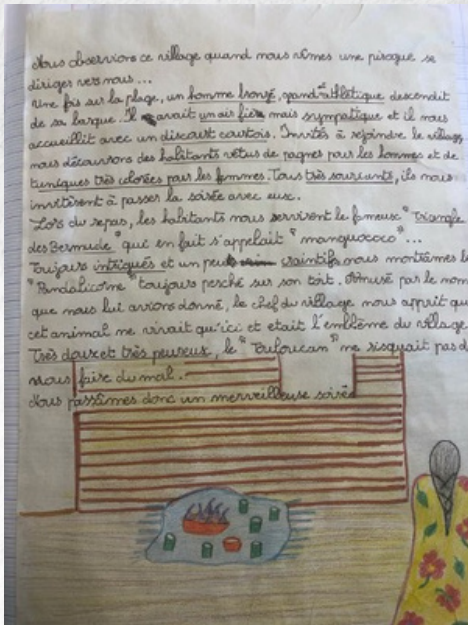 Nous observions ce village quand nous vîmes une pirogue se
diriges vers nous...
Une fois sur la plage, un homme bronzé, grand athlétique descendit
de sa barque. Il avait un air fier mais sympathique et il nous
accueillit avec un discourt courtois. Invités à rejoindre le village
nous découvrons des habitants vêtus de pagnes pour les hommes et de
tuniques très colorées pour les femmes. Tous très souriants, ils nous
invitèrent à passer la soirée avec eux.
Lors du repas, les habitants nous servirent le fameux "Triangle
des Bermude" qui en fait s'appelait "manguococo"...
Toujours intrigués et un peu craintifs nous montrâmes le
"Pandalicorne" toujours perché sur son toit. Amusé par le nom
que nous lui avions donné, le chef du village nous apprit que
cet animal ne vivait qu'ici et etait l'emblême du village.
Très doux et très peureux, le "Toufoucan" ne risquait pas d
nous faire du mal.
Nous passâmes donc un merveilleuse soirée